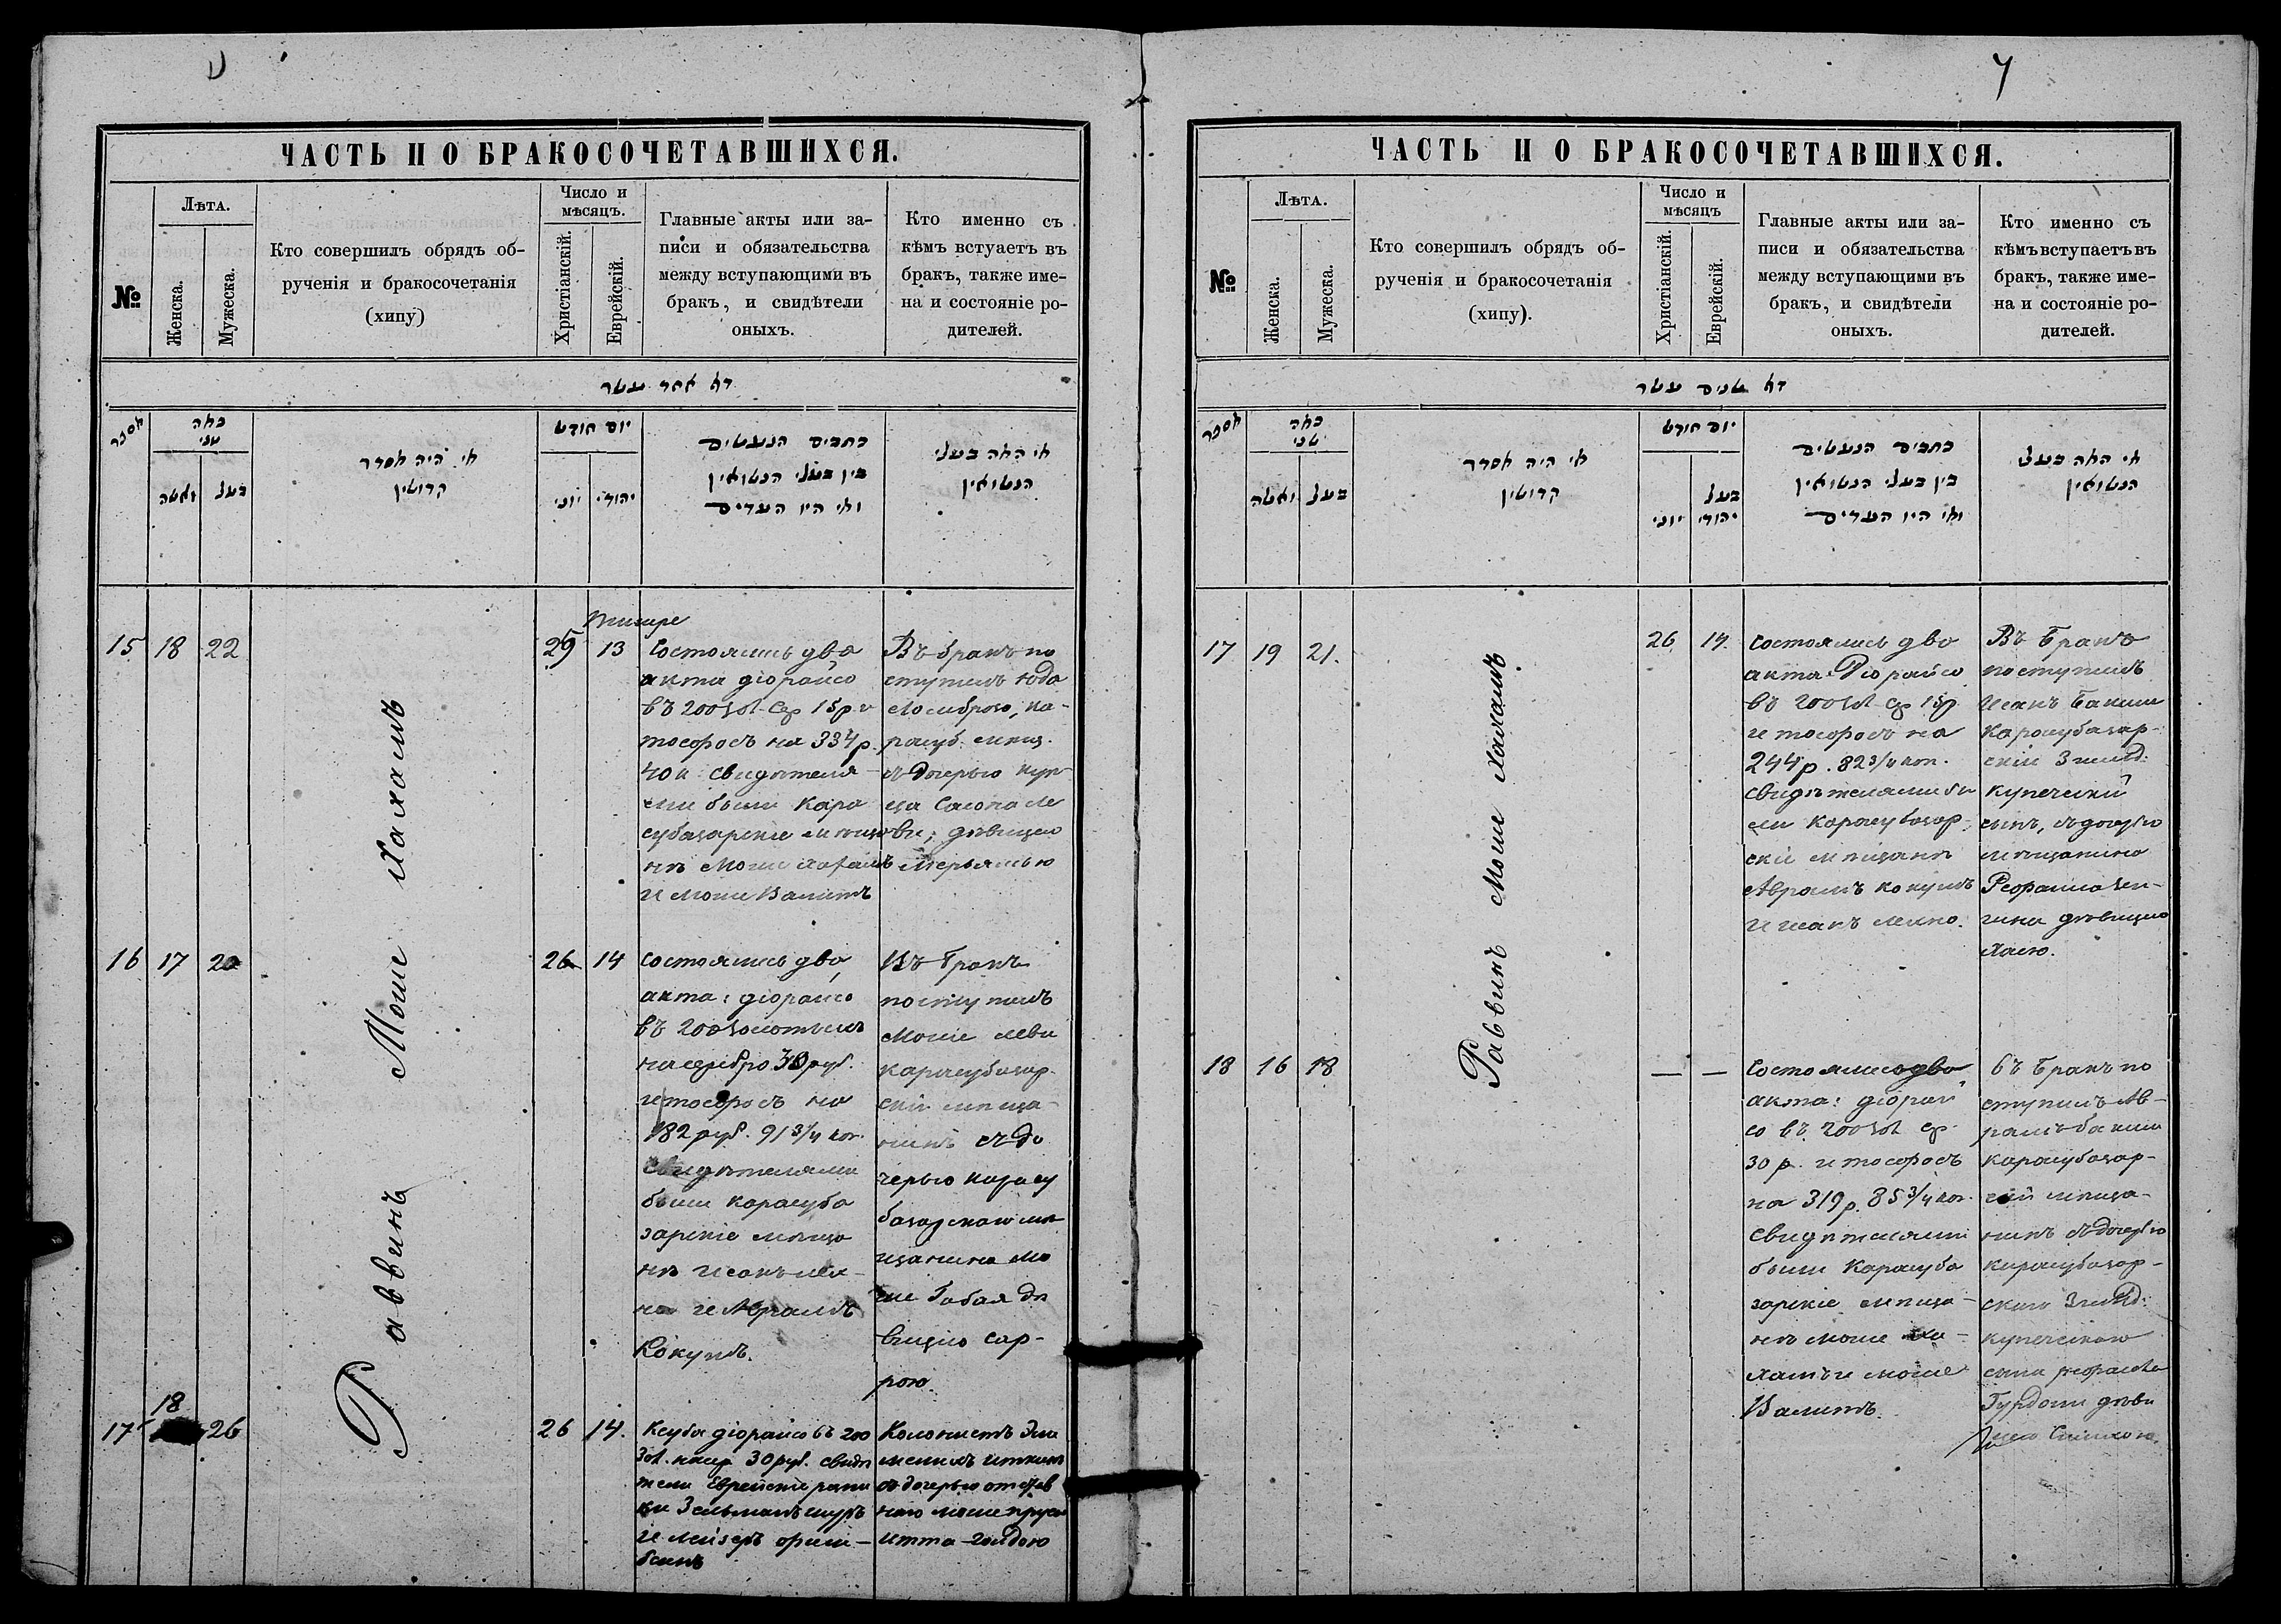 7
ЧАСТЬ II О БРАКОСОЧЕТАВШИХСЯ.
№
Лѣта.
Женска.
Мужеска.
Кто совершилъ обрядъ об-
рученія и бракосочетанія
(хипу)
Число и
мѣсяцъ.
Христіанскій.
Еврейскій.
Главные акты или за-
писи и обязательства
между вступающими въ
бракъ, и свидѣтели
оныхъ.
Кто именно съ
кѣмъ встуаетъ въ
бракъ, также име-
на и состояніе ро-
дителей.
מספר
כמה
שני
ואשה
בעל
מי היה מסדר
קדושין
יום חודש
יוני
יהודי
כתבים הנעשים
בין בעלי הנשואין
ומי היו העדים
מי המה בעלי
הנשואין
Раввинъ Моше Хахамъ
15 18 22
25 13
Состоялись два
акта діорайсо
въ 200 зол. Ср 15р и
тосфосъ на 334р.
40к свидѣтеля-
ми были Кара
субазарскіе мѣща
не Моше Хахамъ
и Моше Валитъ
Въ бракъ по
ступилъ Юда
Ломброзо, Ка-
расуб. мѣщ.
съ дочерью куп-
ца
дѣвицею
Мерьямью
16 17 20
26 14
Состоялись два
акта: діорайсо
въ 200 золотыхъ
на серебро 30 руб.
и тосфосъ на
182 руб. 91 3/4 коп.
Свидѣтелями
были Карасуба
зарскіе мѣща
не Исакъ
и Абрамъ
Кокушъ.
Въ бракъ
поступилъ
Моше Леви
Карасубазар-
скій мѣща-
нинъ съ до
черью Карасу
базарскаго мѣ
щанина Мо
ше Габая дѣ
вицею Сар-
рою.
17 18 26
26 14.
Ксуба діорайсо въ 200
зол. на сер 30 руб. свидѣ
тели Еврейскіе
Зельманъ
и Лейзеръ
Колонистъ
съ дочерью отстав
наго
Итта-Голдою
ЧАСТЬ II О БРАКОСОЧЕТАВШИХСЯ.
№
Лѣта.
Женска.
Мужеска.
Кто совершилъ обрядъ об-
рученія и бракосочетанія
(хипу).
Число и
мѣсяцъ
Христіанскій.
Еврейскій.
Главные акты или за-
писи и обязательства
между вступающими въ
бракъ, и свидѣтели
оныхъ.
Кто именно съ
кѣмъ вступаетъ въ
бракъ, также име-
на и состояніе ро-
дителей.
מספר
כמה
שני
ואשה
בעל
מי היה מסדר
קדושין
יום חודש
יוני
יהודי
כתבים הנעשים
בין בעלי הנשואין
ומי היו העדים
מי המה בעלי
הנשואין
Раввинъ Моше Хахамъ
17 19 21.
26 14.
Состоялись два
акта: Діорайсо
въ 200 зол ср 15р
и тосфосъ на
244р. 82 3/4 коп.
Свидѣтелями бы
ли Карасубазар-
скіе мѣщане
Абрамъ Кокушъ
и Исакъ
Въ Бракъ
поступилъ
Исакъ Бакши
Карасубазар-
скій 3 гильд:
купеческій
сынъ, съ дочерью
мѣщанина
дѣвицею
Ханою.
18 16 18
— —
Состоялись два
акта: діорай
со въ 200 зол ср
30 р. и тосфосъ
на 319 р. 85 3/4 коп.
Свидѣтелями
были Карасуба
зарскіе мѣща-
не Моше Ха-
хамъ и Моше
Валитъ.
Въ Бракъ по
ступилъ Аб-
рамъ Бакши
Карасубазар-
скій мѣща-
нинъ съ дочерью
Карасубазар-
скаго 3 гильд:
купеческаго
сына
Гурджи дѣви
цею Симхою.